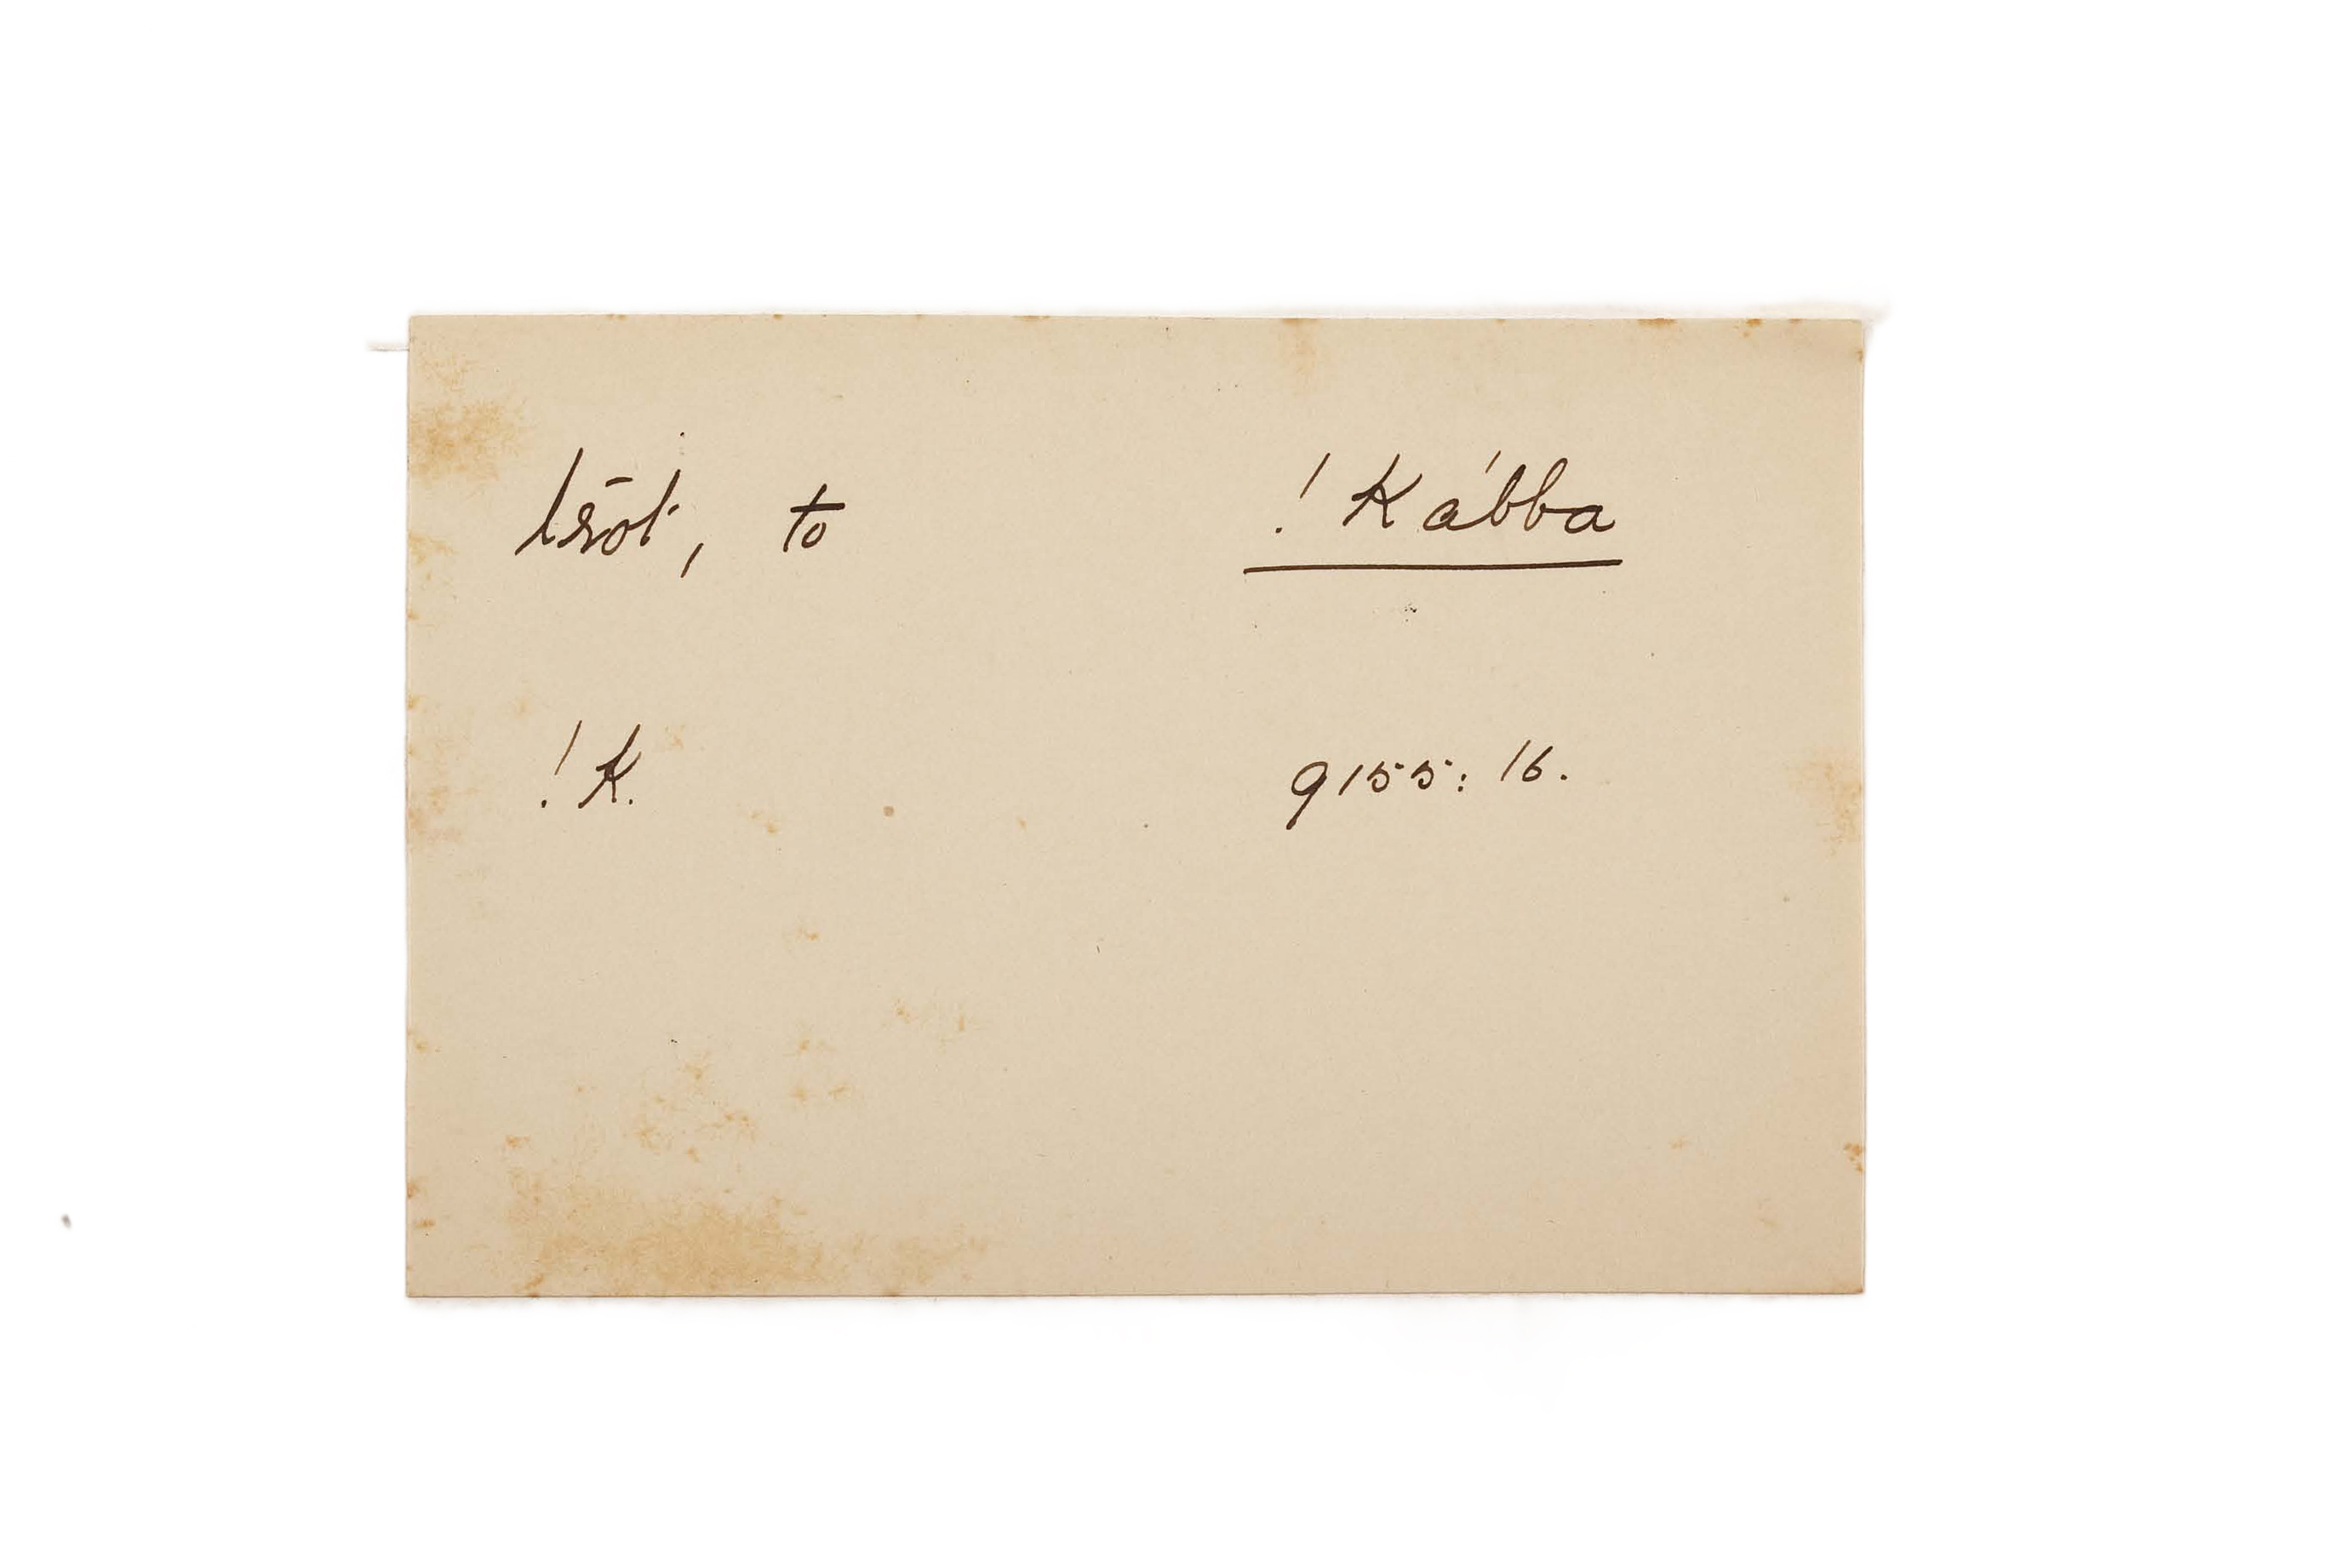 trot, to !Kábba
!K. 9155: 16.